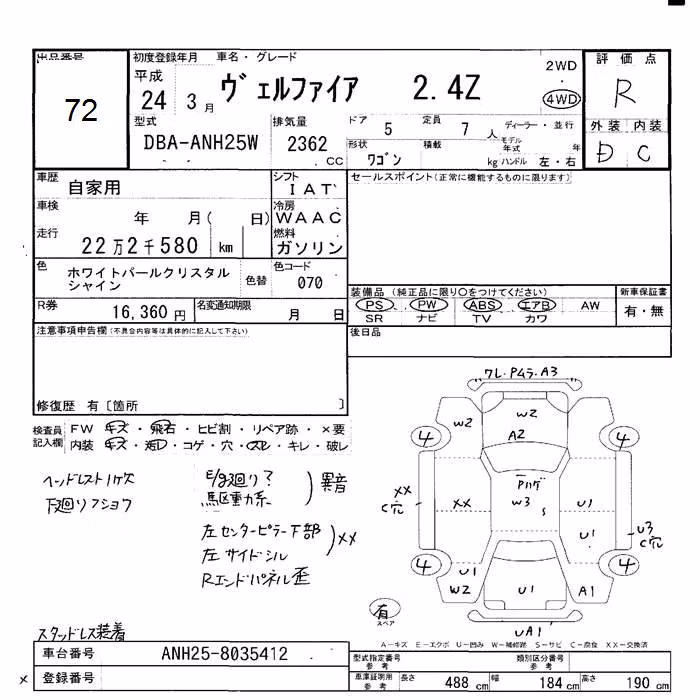 出品番号
72
初度登録年月 車名・グレード
平成
24 3月
ヴェルファイア 2.4Z
2WD
4WD
評価点
R
外装 内装
D C
型式
DBA-ANH25W
排気量
2362
CC
ドア 5 定員 7 人
ディーラー・並行
形状 ワゴン 積載 kg
モデル年式
ハンドル 左・右
車歴 自家用
シフト
IAT
車検 年 月( 日)
冷房
WAAC
走行 22万2千580 km
燃料
ガソリン
色 ホワイトパールクリスタル
シャイン
色替
色コード
070
R券 16,360円
名変通知期限 月 日
注意事項申告欄(不具合内容等は具体的に記入して下さい)
修復歴 有〔箇所 〕
セールスポイント(正常に機能するものに限ります)
装備品(純正品に限り○をつけてください)
PS PW ABS エアB AW
SR ナビ TV カワ
新車保証書
有・無
後日品
検査員記入欄
FW キズ・飛石・ヒビ割・リペア跡・×要
内装 キズ・・コゲ・穴・スレ・キレ・破レ
ヘッドレスト1ケ欠
下廻り
廻り?
駆動力系
異音
左センターピラー下部
左サイドシル
XX
Rエンドパネル歪
スタッドレス装着
ワレ・Pムラ・A3
W2 W2
4 4
A2
Pハゲ
XX
C穴
XX W3 S U1
U1
U3
C穴
4 4
U1
W2 U1 A1
UA1
有
スペア
A-キズ E-エクボ U-凹み W-補修跡 S-サビ C-腐食 XX-交換済
車台番号 ANH25-8035412
× 登録番号
型式指定番号
参考
類別区分番号
参考
車庫証明用
参考
長さ 488 cm 幅 184 cm 高さ 190 cm